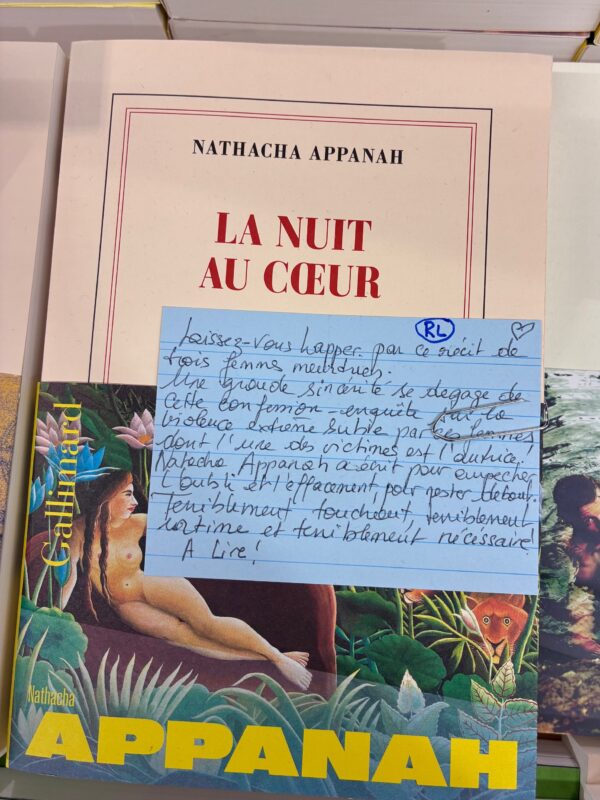 NATHACHA APPANAH
LA NUIT
AU CŒUR
RL
Laissez-vous happer par ce récit de
trois femmes meurtries.
Une grande sincérité se dégage de
cette confession-enquête sur la
violence extrême subie par ces femmes
dont l'une des victimes est l'autrice.
Natacha Appanah a écrit pour empêcher
l'oubli et l'effacement, pour rester debout.
Terriblement touchant, terriblement
intime et terriblement nécessaire!
A Lire!
Gallimard
Nathacha
APPANAH